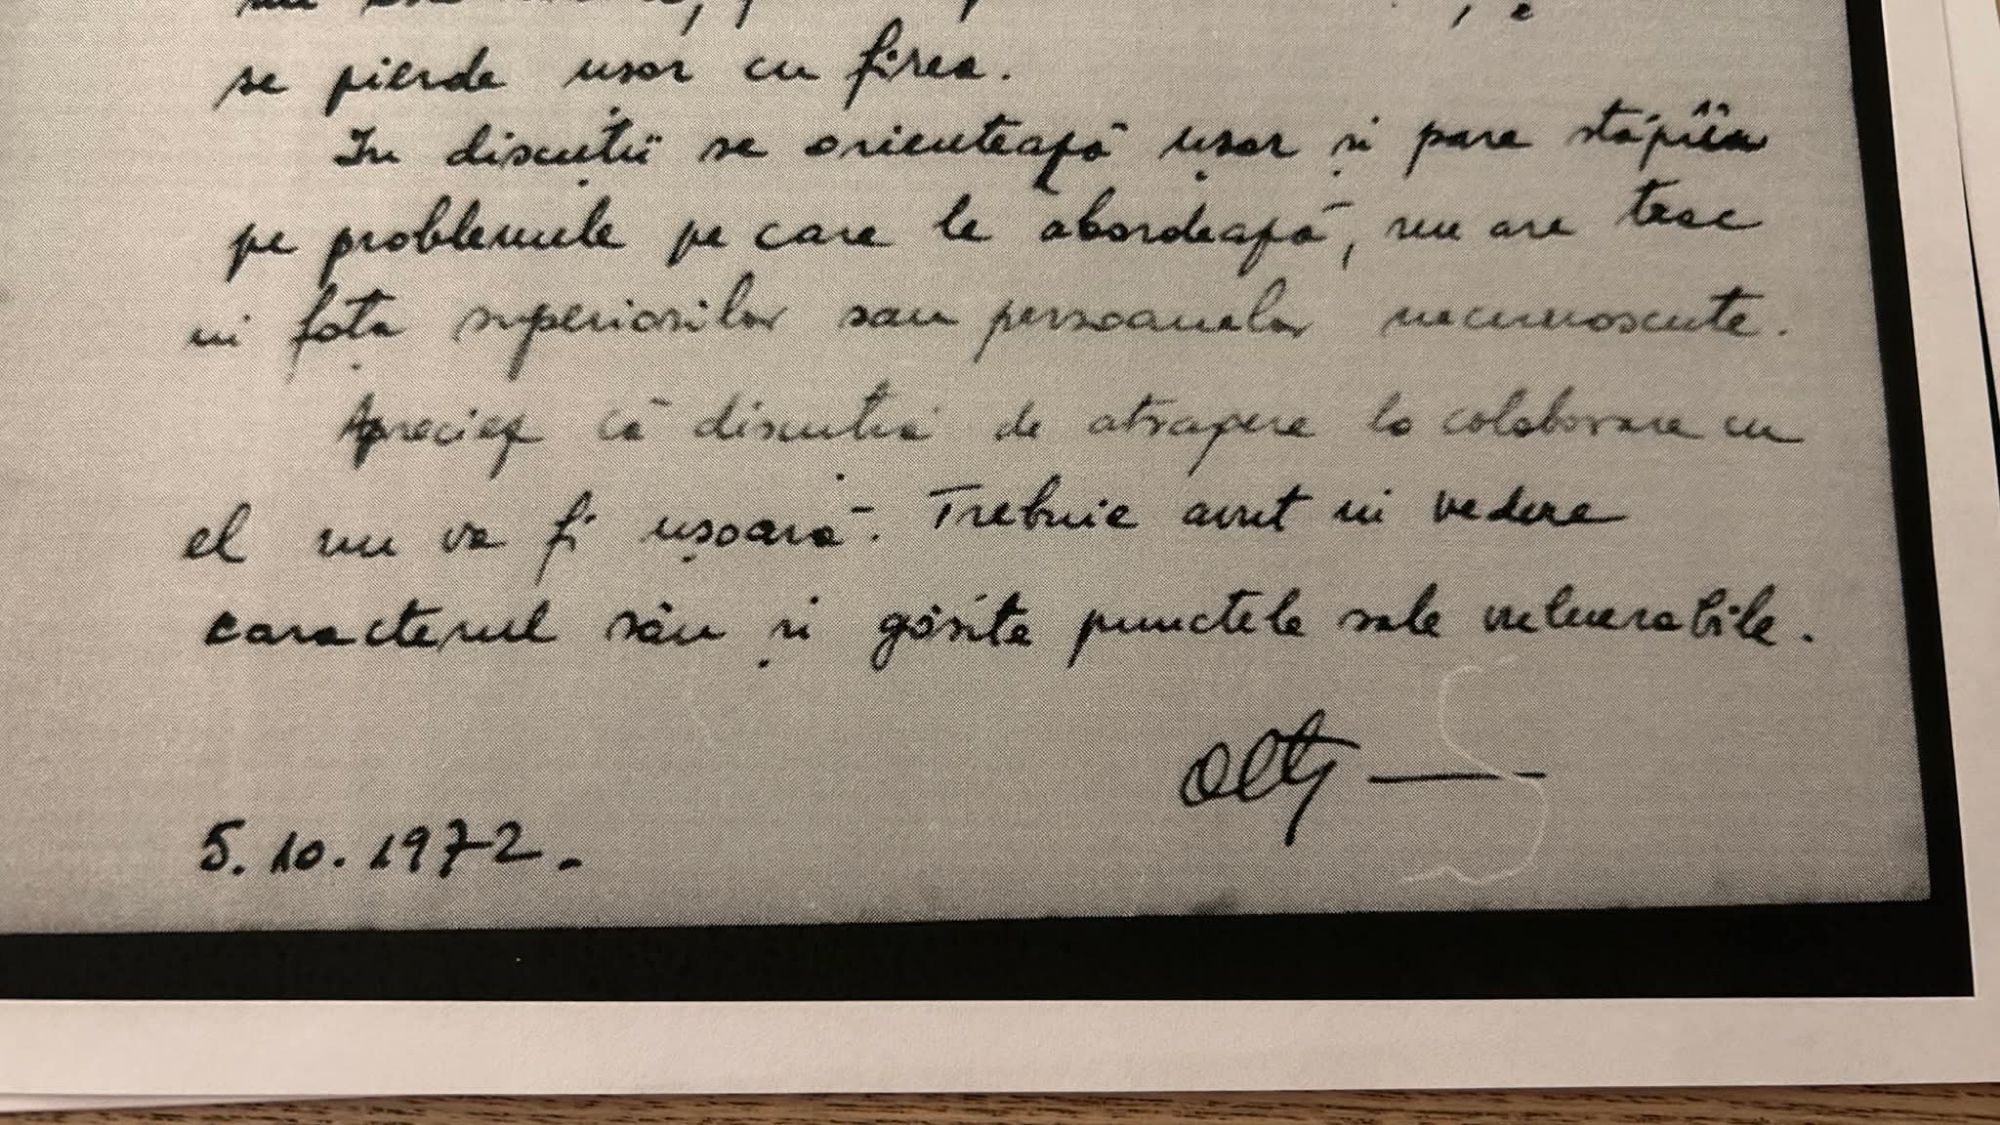 se pierde usor cu firea.
In discuții se orientează ușor și pare stăpîn
pe problemele pe care le abordează, nu are trac
in fața superiorilor sau persoanelor necunoscute.
Apreciez că discutia de atragere la colaborare cu
el nu va fi ușoară. Trebuie avut in vedere
caracterul său și găsite punctele sale vulnerabile.
5.10.1972.